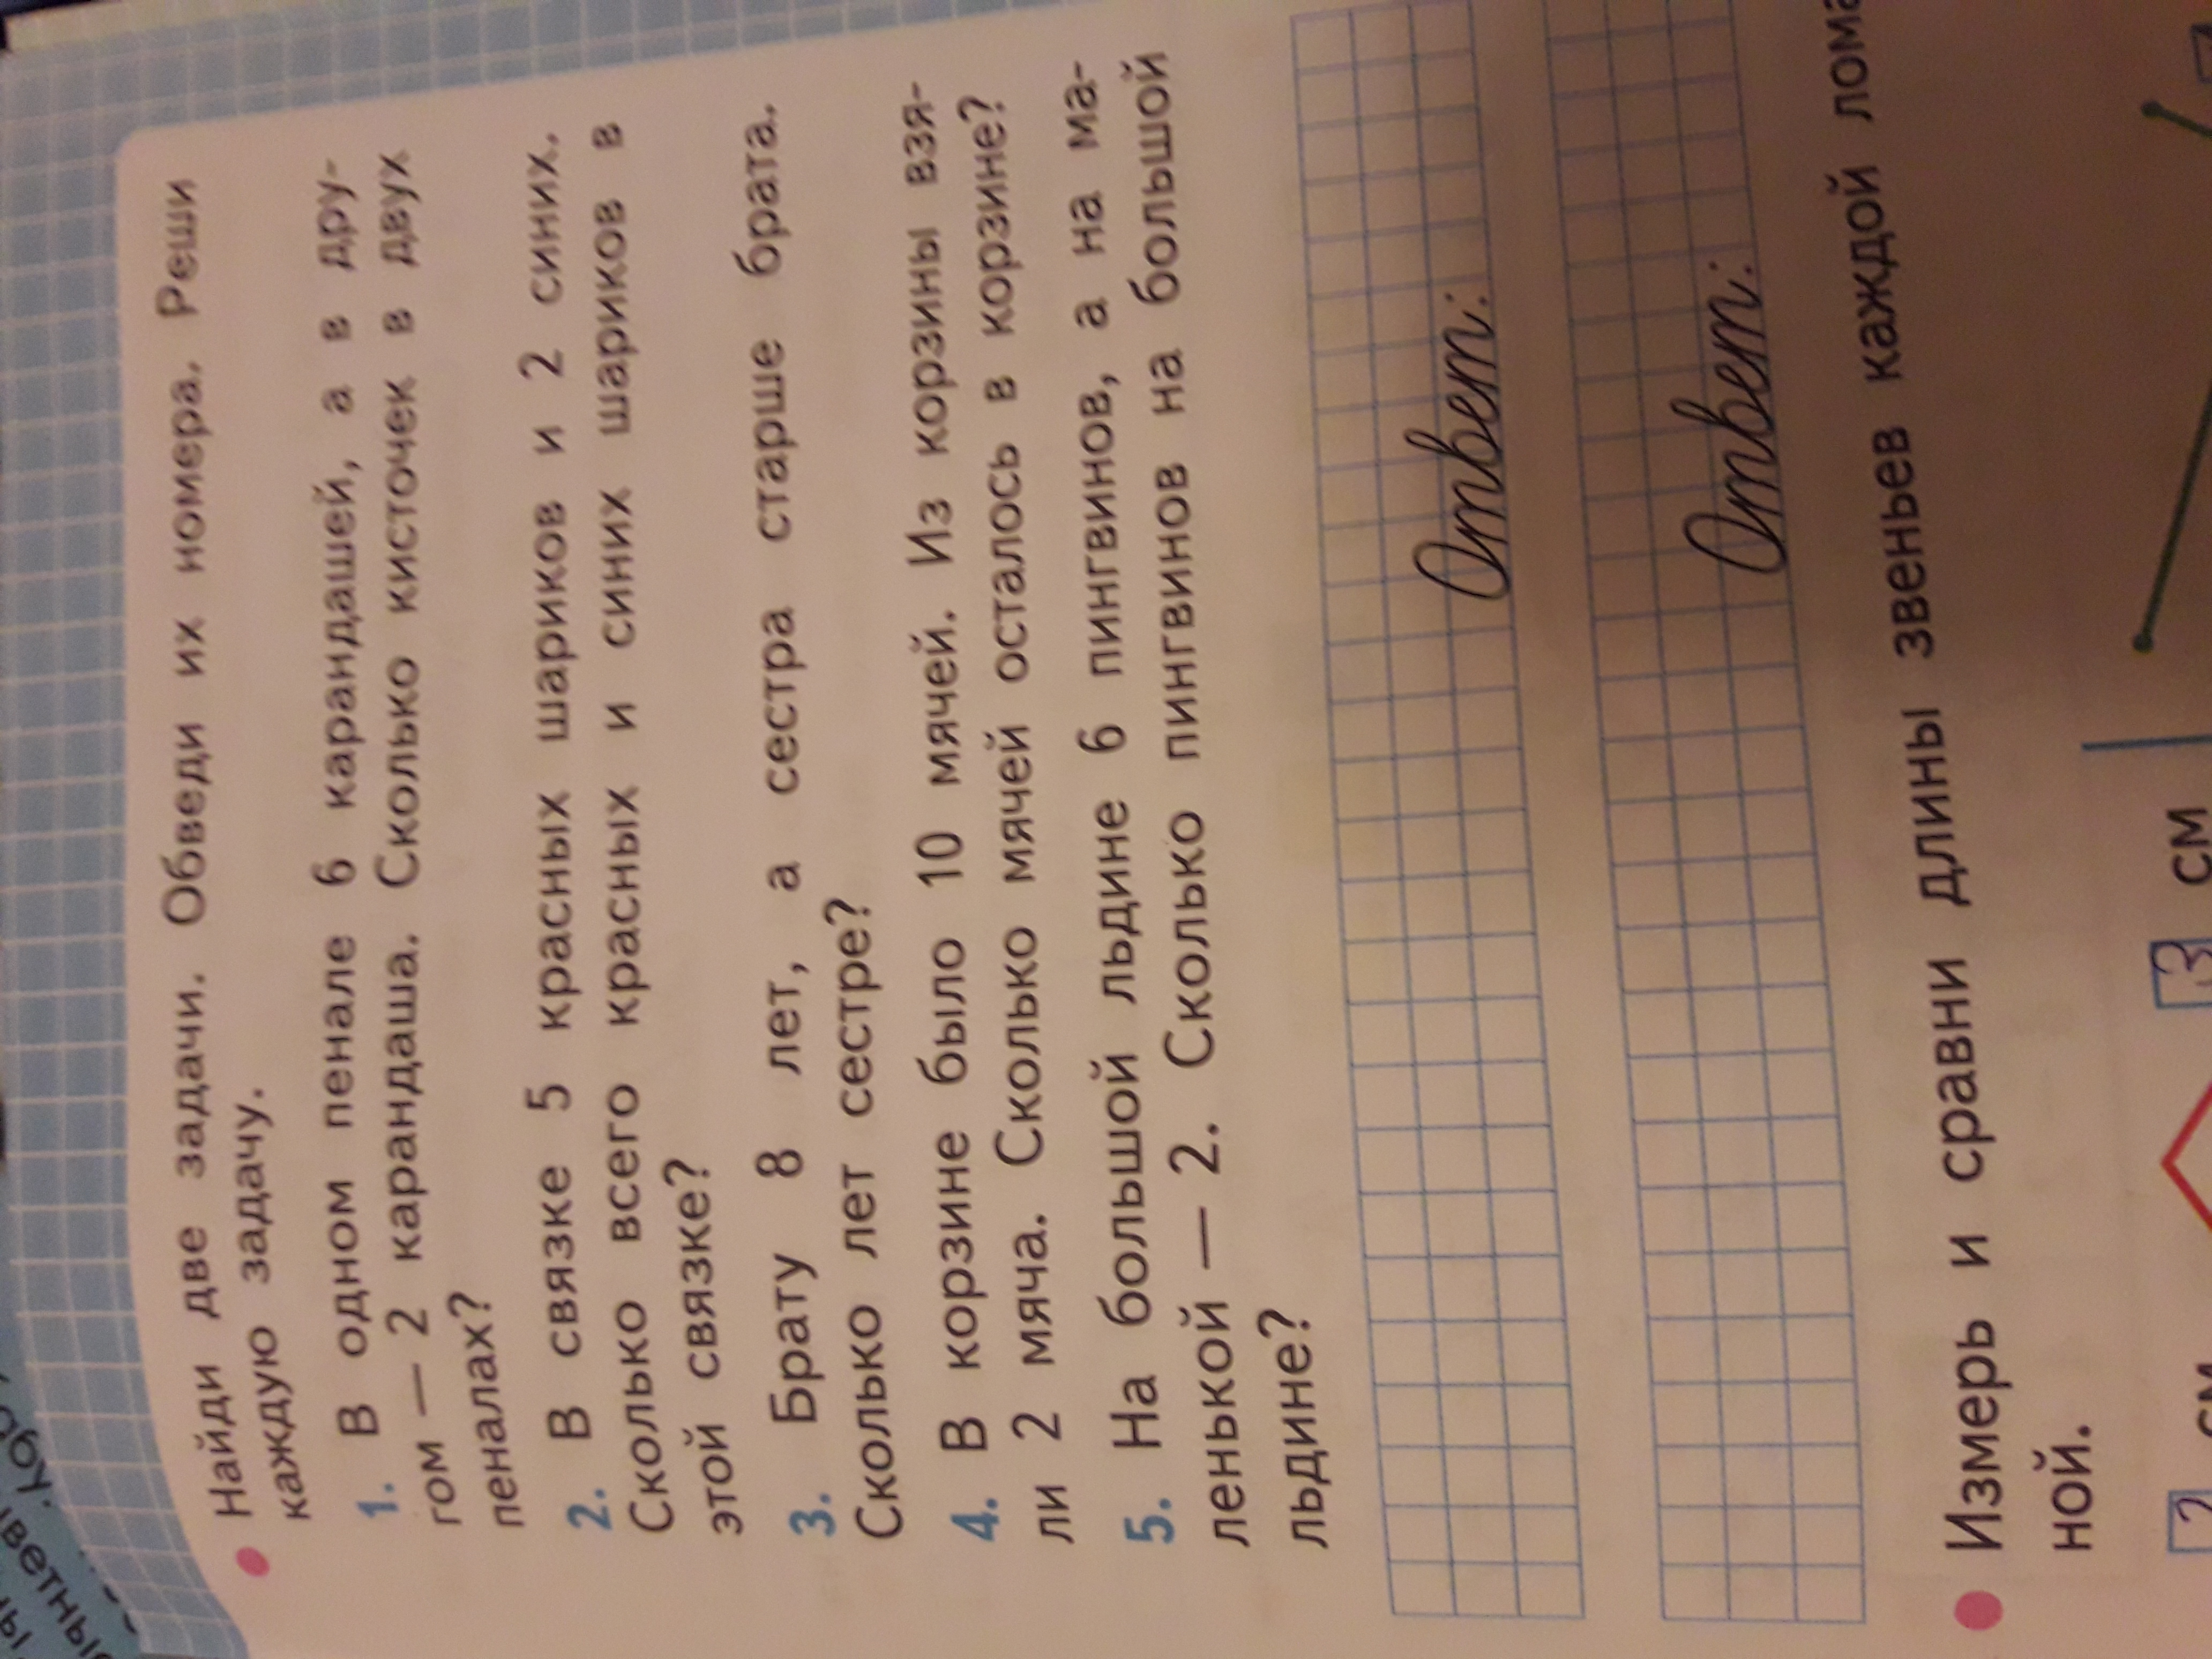 Найди две задачи. Обведи их номера. Реши
каждую задачу.
1. В одном пенале 6 карандашей, а в дру-
гом — 2 карандаша. Сколько кисточек в двух
пеналах?
2. В связке 5 красных шариков и 2 синих.
Сколько всего красных и синих шариков в
этой связке?
3. Брату 8 лет, а сестра старше брата.
Сколько лет сестре?
4. В корзине было 10 мячей. Из корзины взя-
ли 2 мяча. Сколько мячей осталось в корзине?
5. На большой льдине 6 пингвинов, а на ма-
ленькой — 2. Сколько пингвинов на большой
льдине?
Ответ:
Ответ:
Измерь и сравни длины звеньев каждой лома
ной.
2 см 3 см